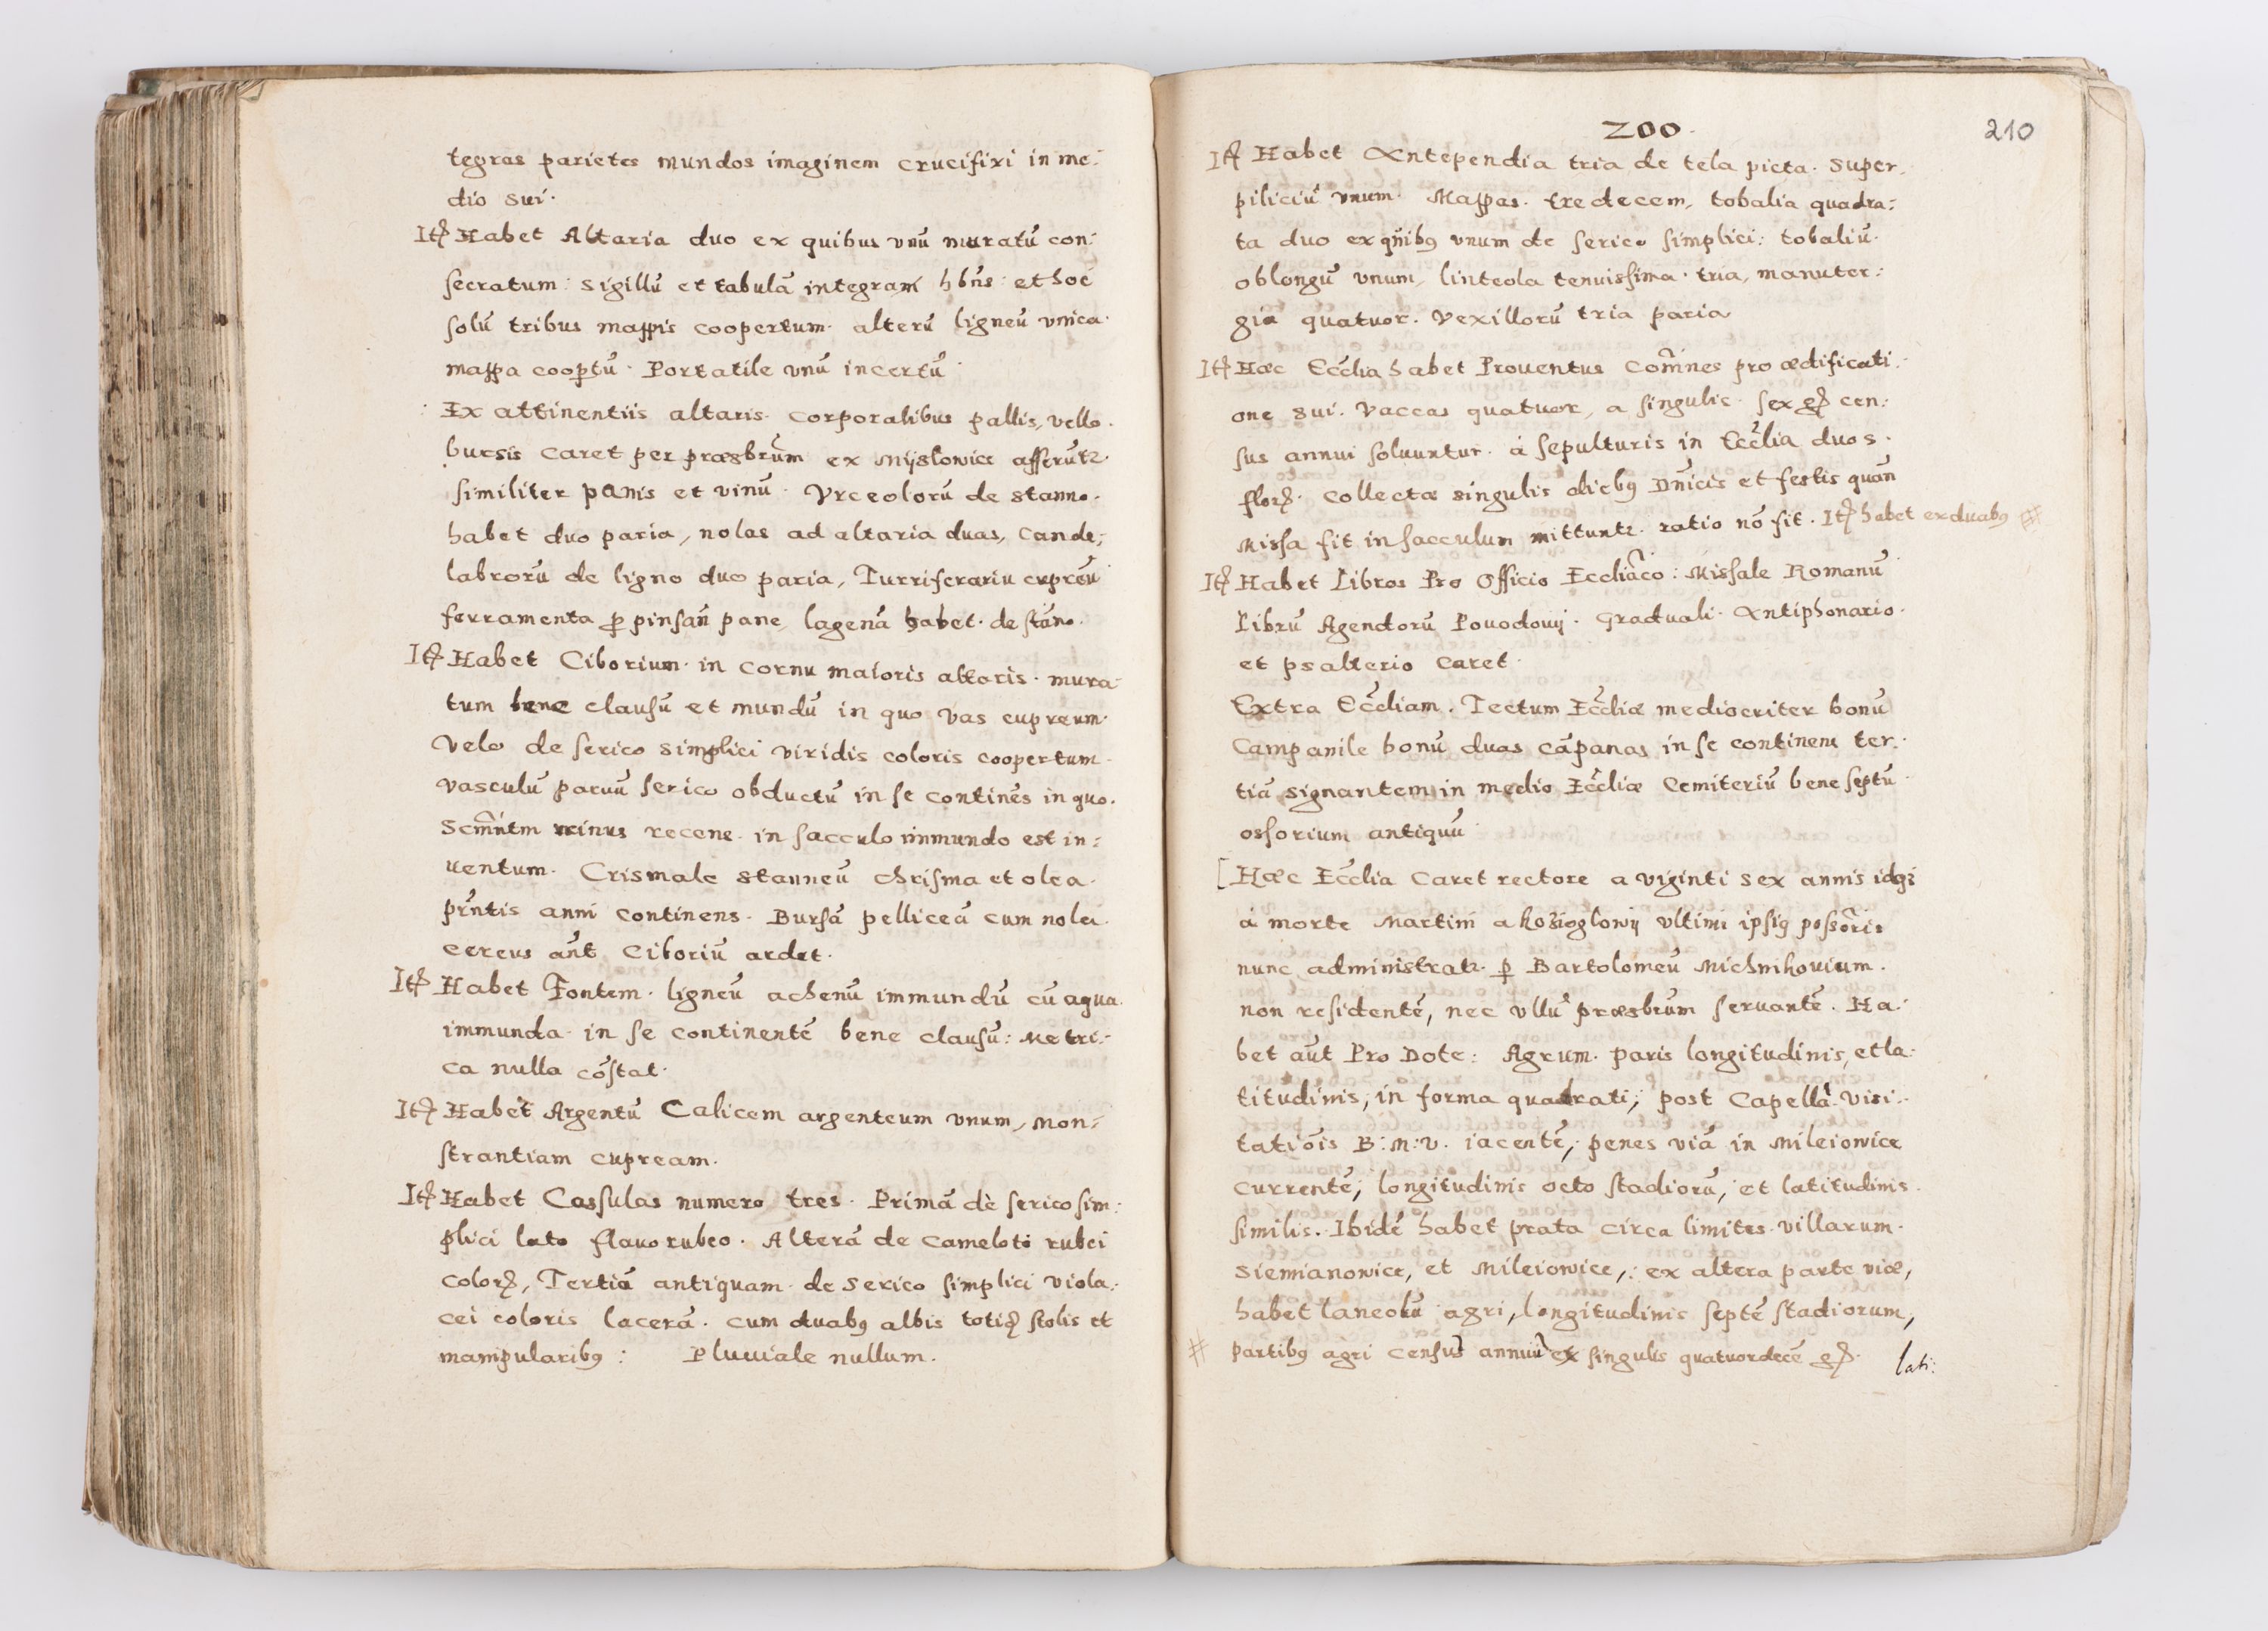 tegras parietes mundos imaginem crucifixi in me:
dio sui.
Itẽ Habet Altaria duo ex quibus vnũ muratũ con:
secratum: sigillũ et tabulã integram hbñs: et hoc
solũ tribus mappis coopertum. alterũ ligneũ vnica.
mappa coopertũ. Portatile vnũ incertũ.
Ex attinentiis altaris. corporalibus pallis, vello.
bursis caret per præsbrũm ex Mijslowice afferũtr.
similiter panis et vinũ. Vrceolorũ de stanno.
habet duo paria, nolas ad altaria duas, cande:
labrorũ de ligno duo paria, Turriferariũ cupreũ
ferramenta p pinsañ pane, lagenã habet. de stãno.
Itẽ Habet Ciborium. in cornu maioris altaris. mura:
tum bene clausũ et mundũ in quo vas cupreum.
Velo de serico simplici viridis coloris coopertum.
vasculũ paruũ serico obductũ in se continẽs in quo.
Scmñtm minus recens. in sacculo immundo est in:
uentum. Crismale stanneũ chrisma et olea.
prñtis anni continens. Bursã pelliceã cum nola.
cereus añt Ciboriũ ardet.
Itẽ Habet Fontem. ligneũ achenũ immundũ cũ aqua.
immunda. in se continentẽ bene clausũ: Metri:
ca nulla cõstat.
Itẽ Habet Argentũ Calicem argenteum vnum, Mon:
strantiam cupream.
Itẽ Habet Cassulas numero tres. Primã dè serico sim:
plici lato flauo rubeo. Alterã de cameloto rubei
colorẽ, Tertiã antiquam. de serico simplici viola:
cei coloris lacerã. cum duabꝰ albis totiẽ stolis et
manipularibꝰ: Pluuiale nullum.
200.
210
Itẽ Habet Antependia tria de tela picta. super.
piliciũ vnum. Mappas. tredecem, tobalia quadra:
ta duo ex qñibꝰ vnum de serico simplici: tobaliũ.
oblongũ vnum, linteola tenuissima. tria, manuter:
gia quatuor. Vexillorũ tria paria
Itẽ Hæc Ecc̃lia habet Prouentus com̃nes pro ædificati:
one sui. Vaccas quatuor, a singulis. sex gẽ cen:
sus annui soluuntur. á sepulturis in Ecc̃lia duos.
florẽ. Collectæ singulis diebꝰ Dñicis et festis quañ
Missa fit in sacculum mittuntr. ratio nõ fit. Itẽ habet ex duabꝰ #
Itẽ Habet Libros Pro Officio Eccliãco: Missale Romanũ
Librũ Agendorũ Pouodouij. Graduali. Antiphonario.
et psalterio caret.
Extra Ecc̃liam. Tectum Ecc̃liæ mediocriter bonũ
Campanile bonũ duas cãpanas in se continens ter:
tiã signantem in medio Ecc̃liæ Cemiteriũ bene septũ.
ossorium antiquũ.
[Hæc Ecc̃lia caret rectore a viginti sex annis idqi
á morte Martini a Koziogłowij vltimi ipsiꝰ possoris
nunc administratr. p Bartolomeũ Michnikouium.
non residentẽ, nec vllũ præsbrũm seruantẽ. Ha:
bet aũt Pro Dote: Agrum. paris longitudinis, et la:
titudinis, in forma quadrati, post Capellã Visi:
tatiõis B: M: V. iacentẽ, penes viã in Mileiowice
currentẽ, longitudinis octo stadiorũ, et latitudinis.
similis. Ibidẽ habet prata circa limites. villarum.
Siemianowice, et Mileiowice,: ex altera parte viæ,
habet laneolũ agri, longitudinis septẽ stadiorum,
# partibꝰ agri censũ annuũ ex singulis quatuordecẽ gẽ.
lati: